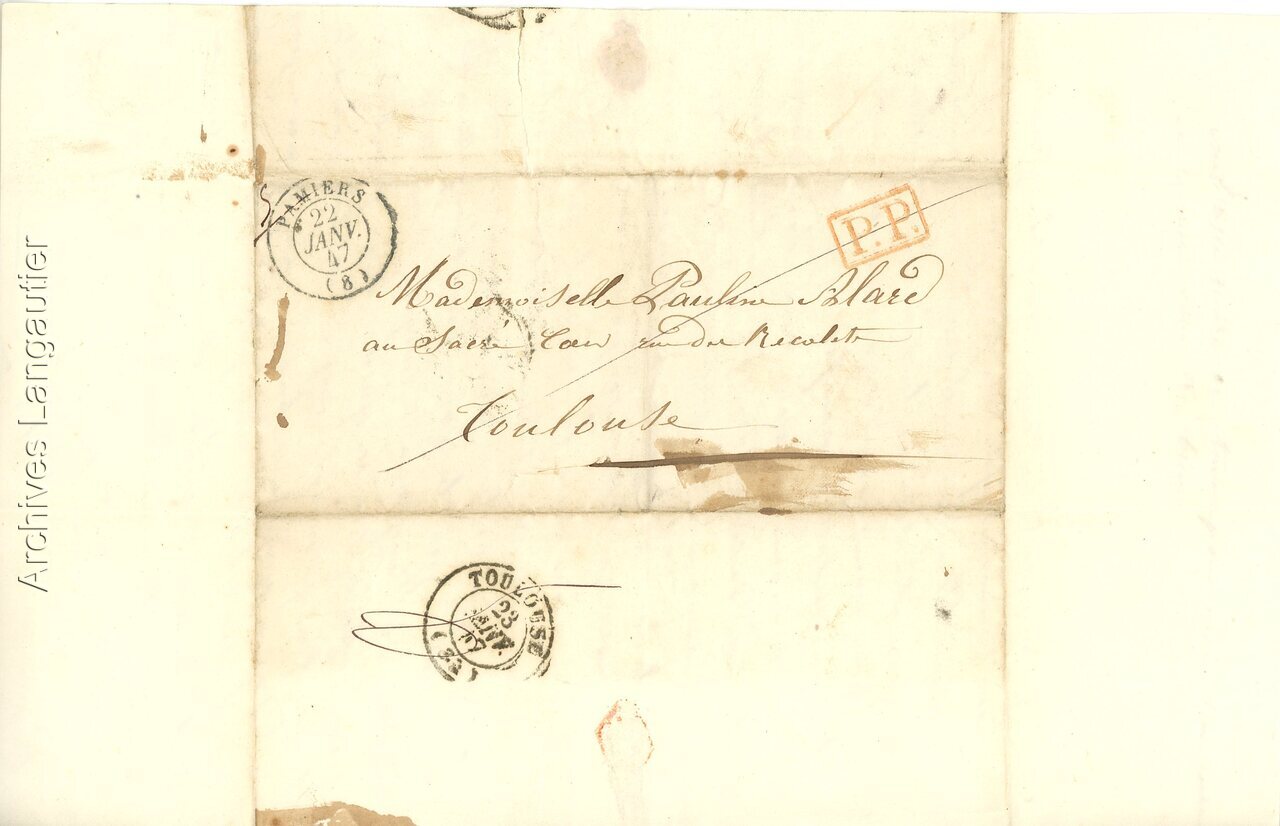 PAMIERS
22
JANV.
47
(8)
P.P.
Mademoiselle Pauline Alard
au Sacré Cœur rue des Recolets
Toulouse
TOULOUSE
23
JANV.
47
Archives Langautier